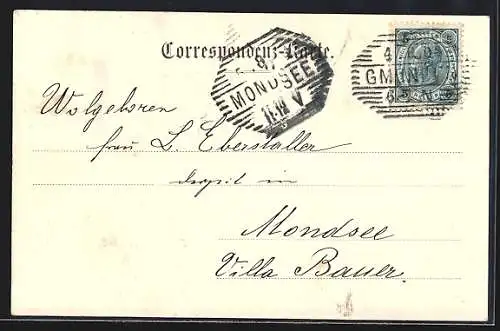 Correspondenz-Karte.
MONDSEE
GMUNDEN
Wolgeboren
frau L. Eberstaller
in
Mondsee
Villa Bauer.